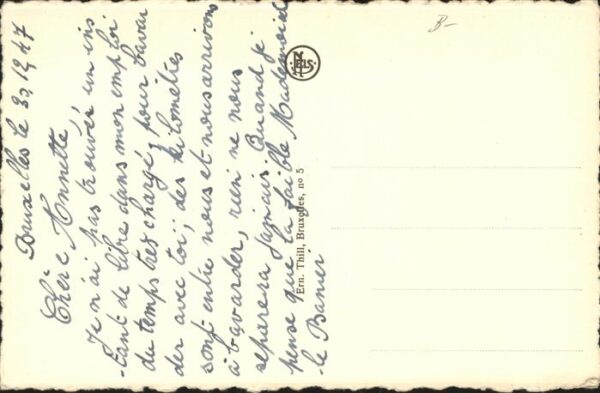 Bruxelles le 30.19.47
Chère Annette,
Je n'ai pas trouvé un ins
-tant de libre dans mon emploi
du temps très chargé, pour bavar
der avec toi; des kilomètres
sont entre nous et nous arrivons
à bavarder, rien ne nous
separera jamais. Quand je
pense que ta faible Mademoisel
-le Banier
Ern. Thill, Bruxelles, no 5
B-